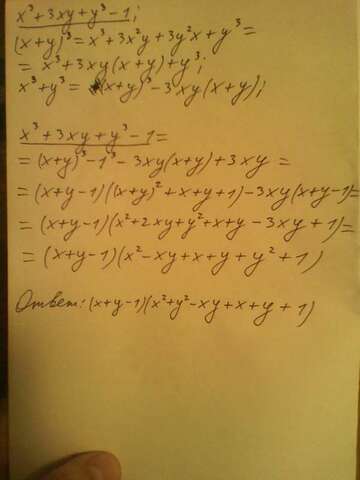 x³+3xy+y³-1;
(x+y)³=x³+3x²y+3y²x+y³=
= x³+3xy(x+y)+y³;
x³+y³= (x+y)³-3xy(x+y);
x³+3xy+y³-1=
= (x+y)³-1³-3xy(x+y)+3xy =
= (x+y-1)((x+y)²+x+y+1)-3xy(x+y-1)=
= (x+y-1)(x²+2xy+y²+x+y-3xy+1)=
= (x+y-1)(x²-xy+x+y+y²+1)
Ответ: (x+y-1)(x²+y²-xy+x+y+1)